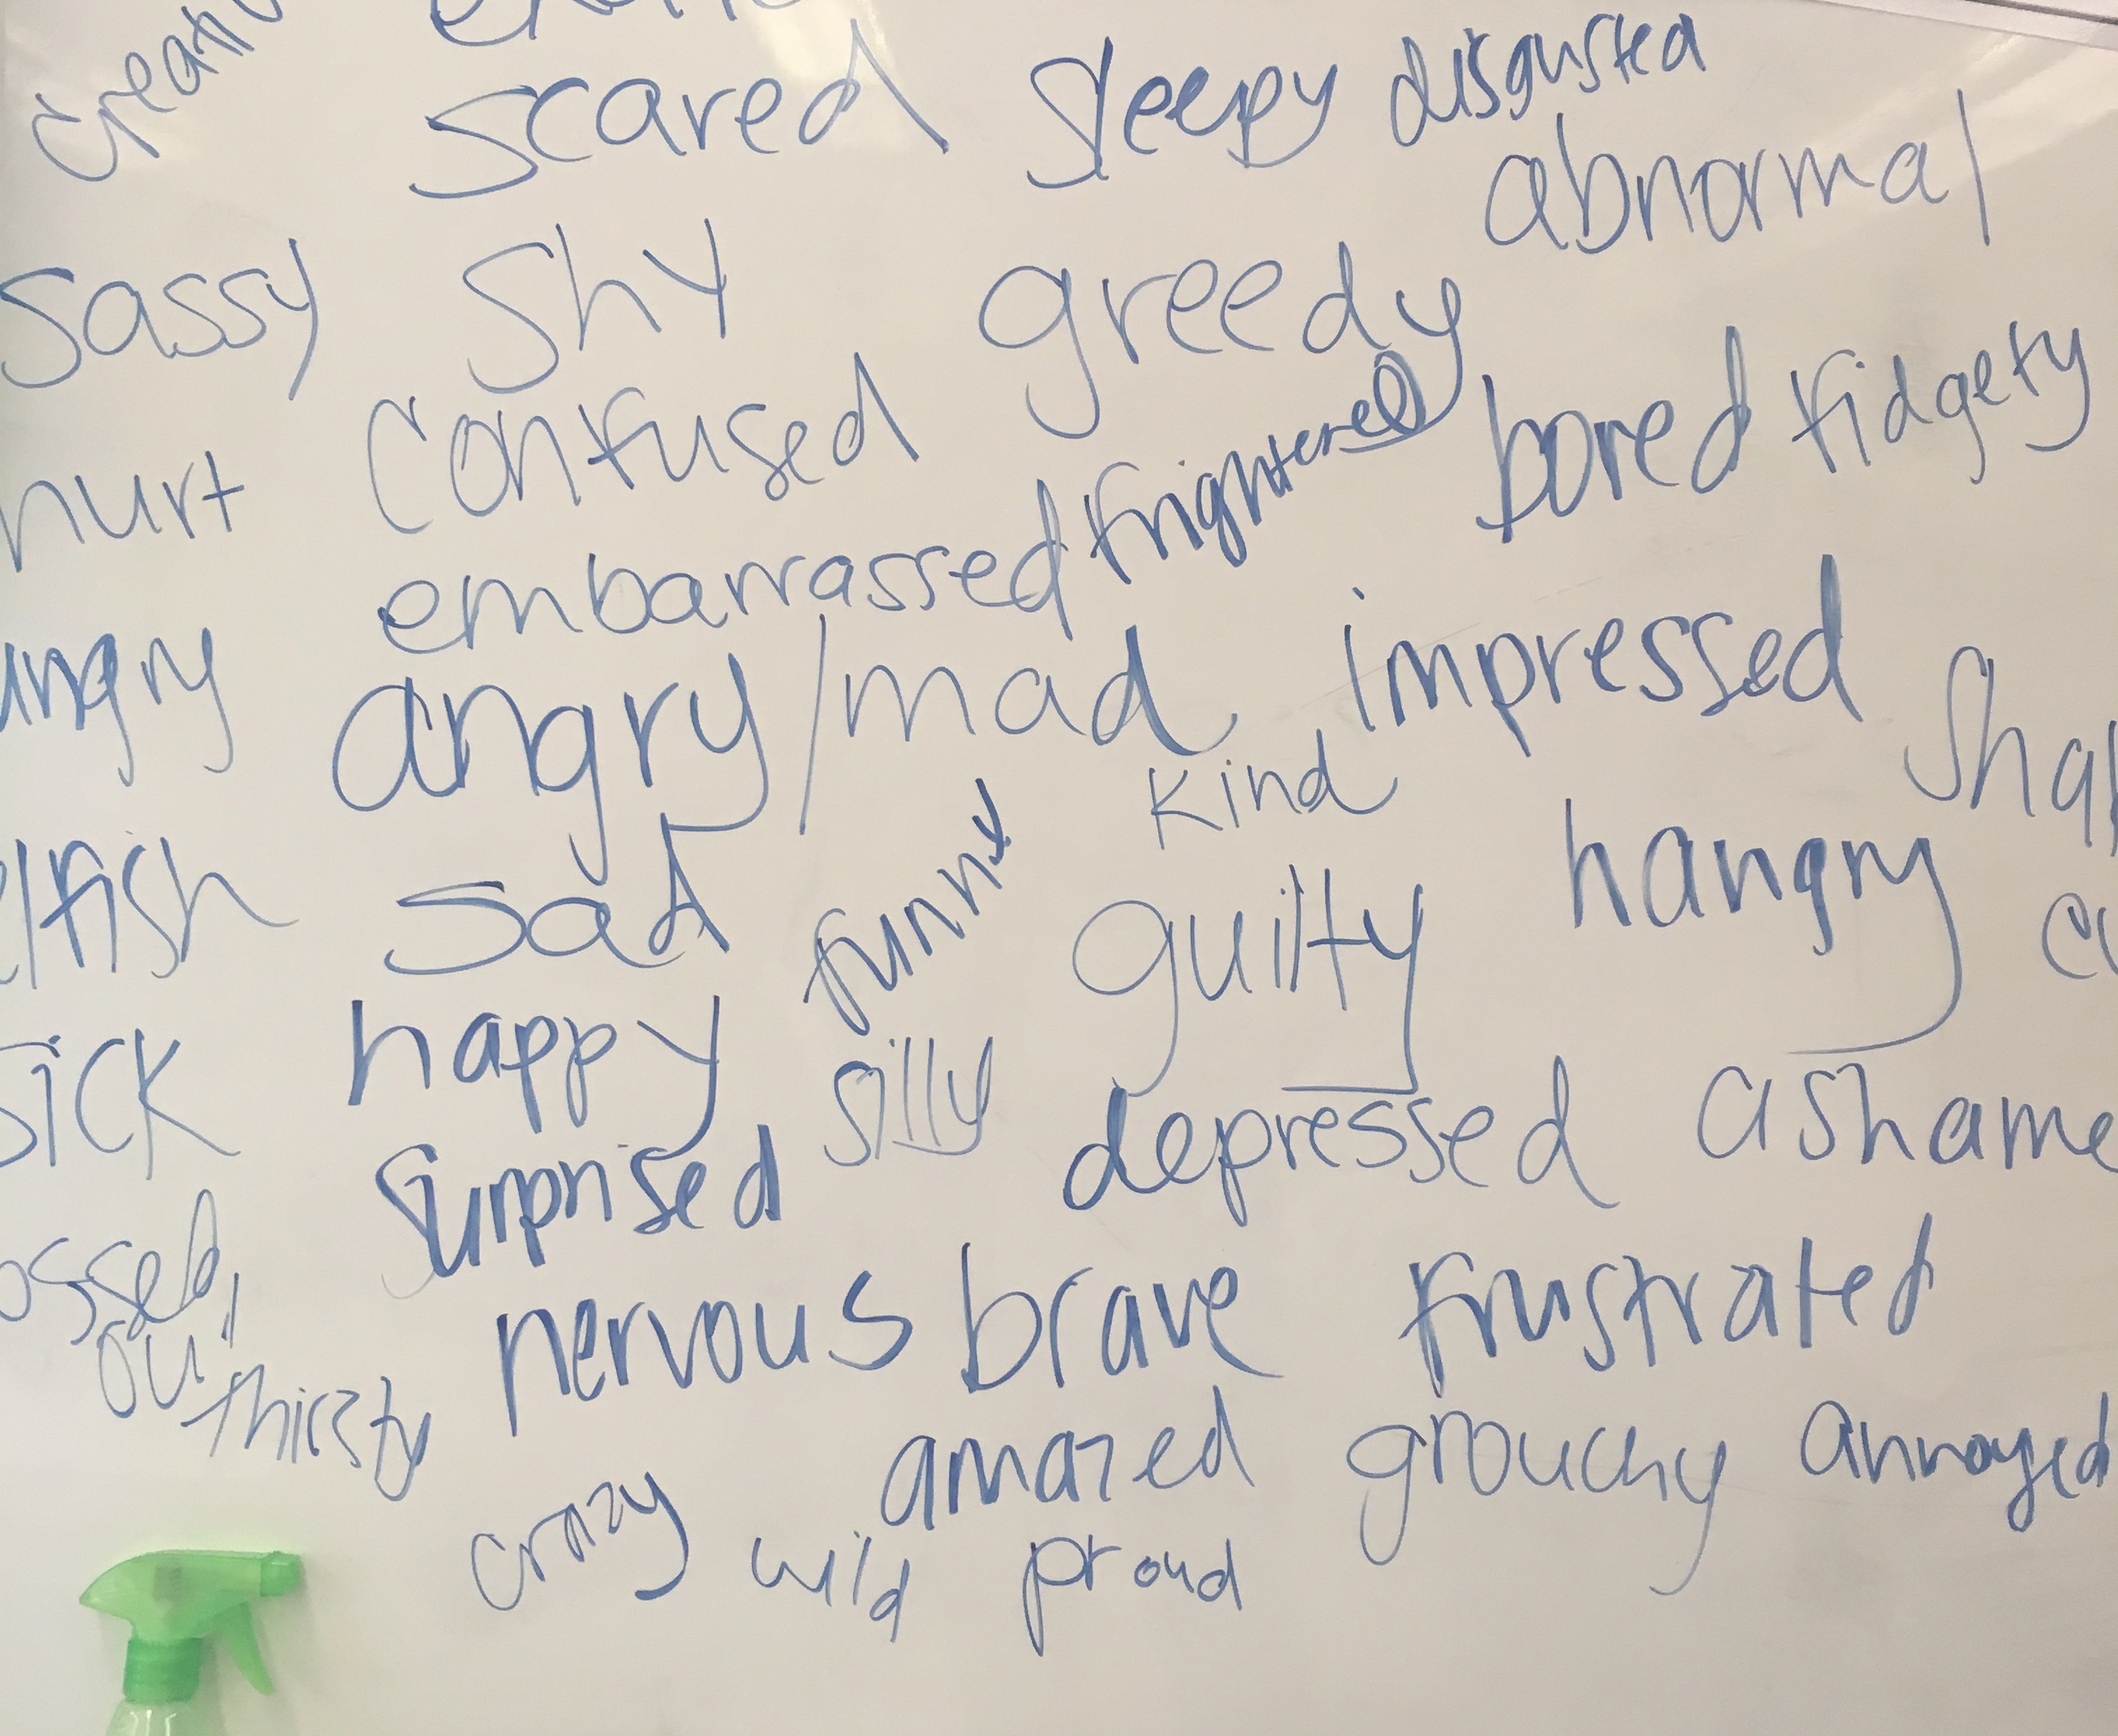 scared sleepy disgusted
abnormal
sassy shy greedy
hurt confused frightened bored fidgety
embarrassed
angry/mad impressed
kind
sad funny guilty hangry
sick happy silly
surprised depressed
nervous brave frustrated
out
thirsty amazed grouchy annoyed
crazy wild proud